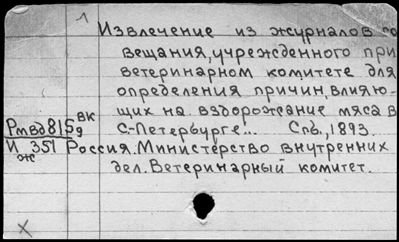 1
Извлечение из журналов со
вещания, учрежденного при
ветеринарном комитете для
определения причин, влияю-
щих на вздорожание мяса в
С-Петербурге... Спб., 1893.
Рмвд815 вк
9
И 351
ж
Россия. Министерство внутренних
дел. Ветеринарный комитет.
X